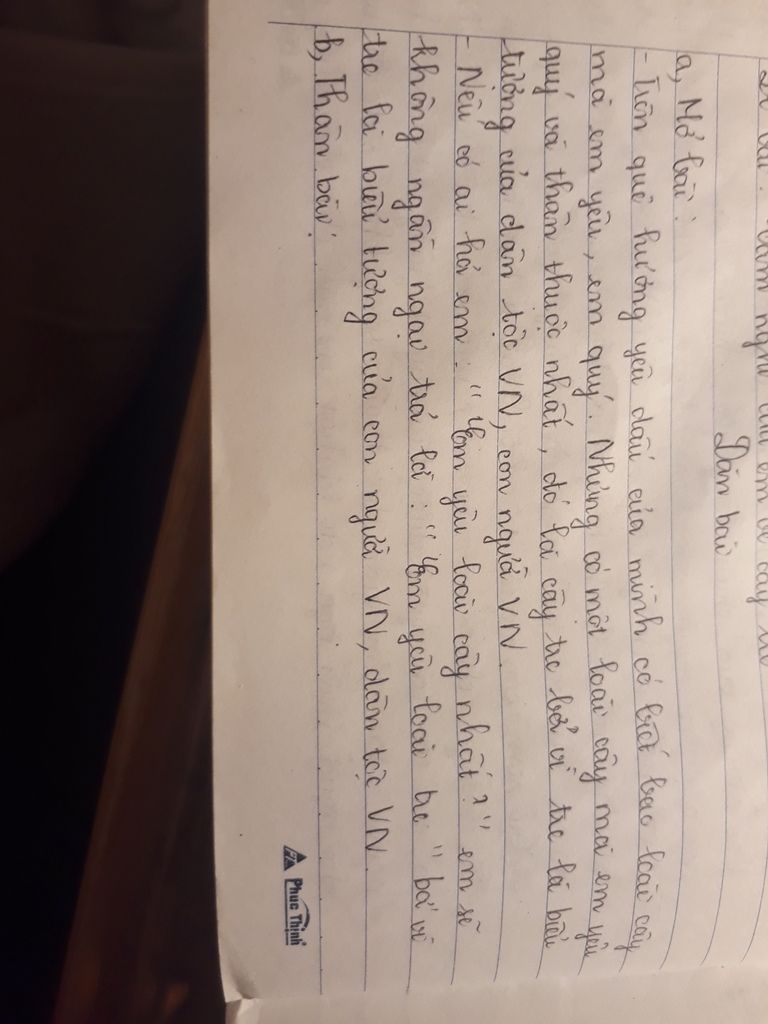 Đề bài: Cảm nghĩ của em về cây tre
Dàn bài
a, Mở bài:
- Trên quê hương yêu dấu của mình có biết bao loài cây
mà em yêu, em quý. Nhưng có một loài cây mà em yêu
quý và thân thuộc nhất, đó là cây tre bởi vì tre là biểu
tượng của dân tộc VN, con người VN.
- Nếu có ai hỏi em: "Em yêu loài cây nhất?" em sẽ
không ngần ngại trả lời: "Em yêu loài tre" bởi vì
tre là biểu tượng của con người VN, dân tộc VN.
b, Thân bài:
Phuc Thinh